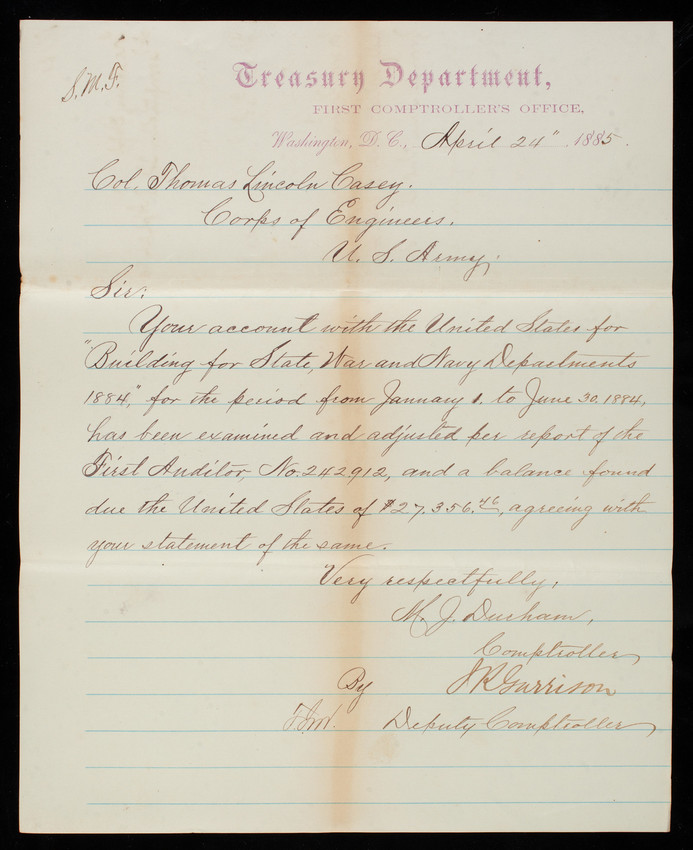 S.M.F.
Treasury Department,
FIRST COMPTROLLER'S OFFICE,
Washington, D. C., April 24" 1885.
Col. Thomas Lincoln Casey.
Corps of Engineers.
U. S. Army;
Sir:
Your account with the United States for
"Building for State, War and Navy Departments
1884," for the period from January 1. to June 30, 1884,
has been examined and adjusted per report of the
First Auditor, No. 242912, and a balance found
due the United States of $27.356.46, agreeing with
your statement of the same.
Very respectfully,
M. J. Durham,
Comptroller,
By J R Garrison
Deputy Comptroller,